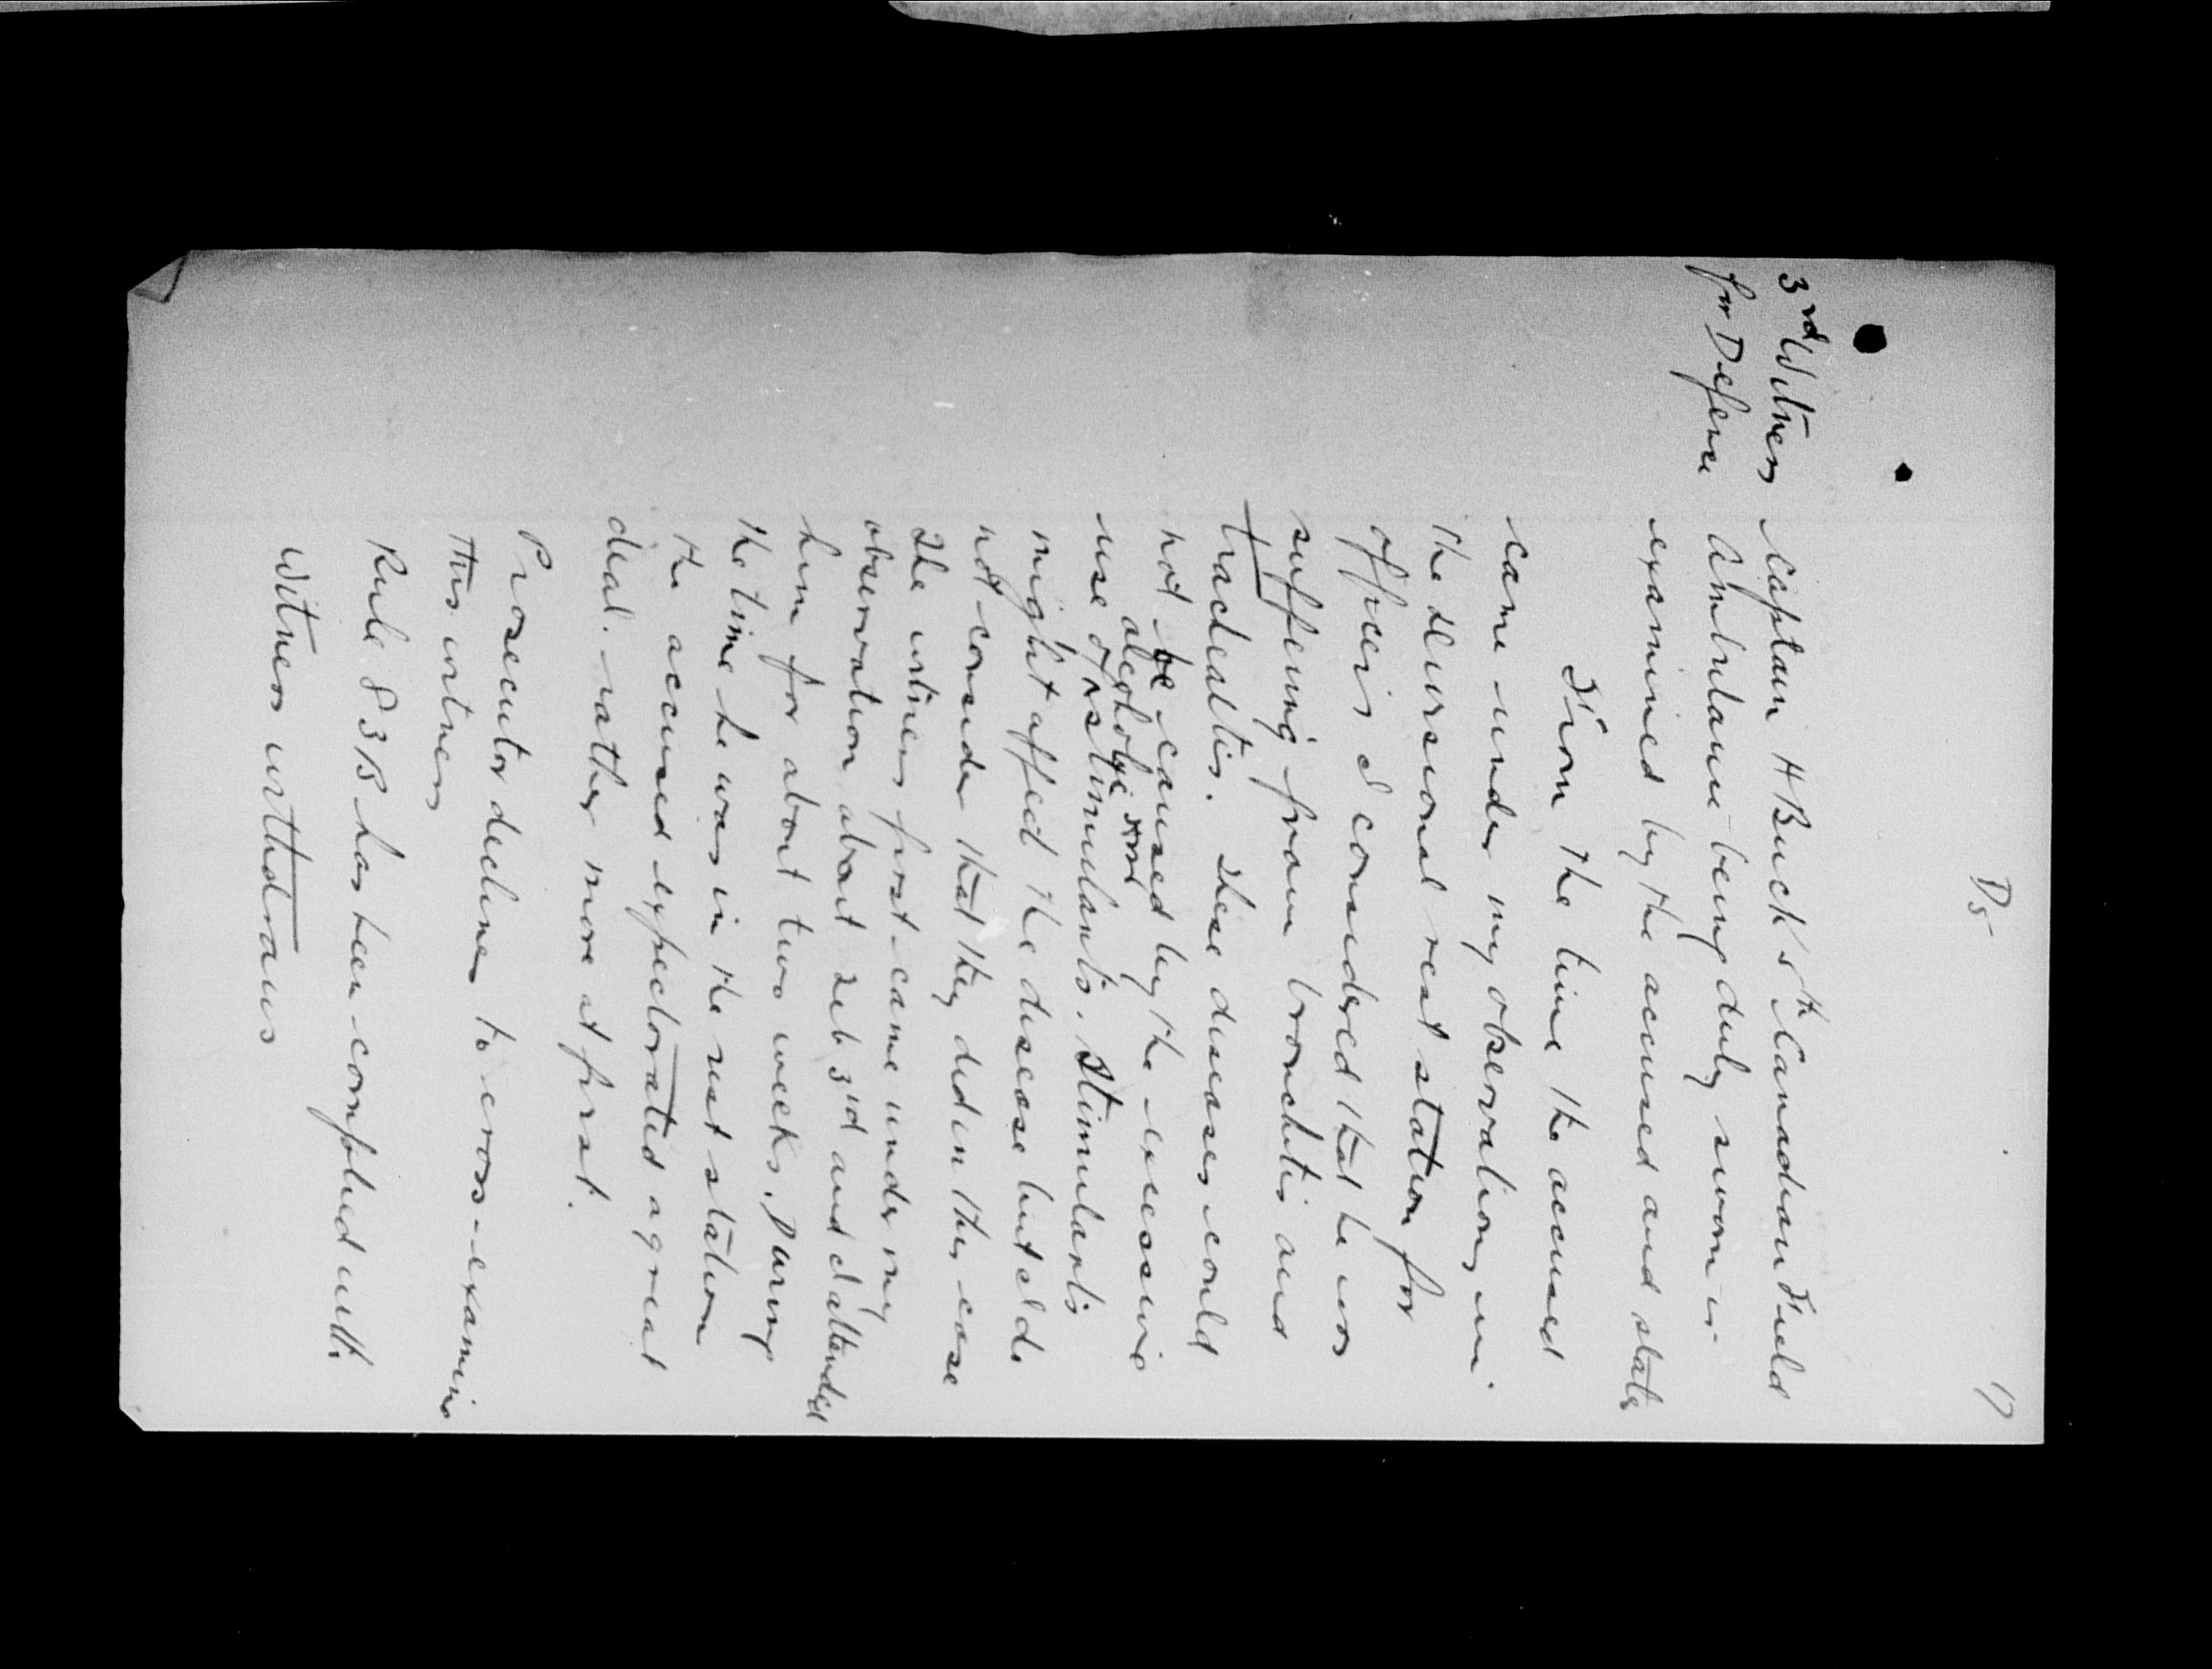 D5
17
3rd Witness
for Defence
Captain H Buck 5th Canadian Field
Ambulance being duly sworn is
examined by the accused and states
From the time the accused
came under my observation, in
the divisional rest station for
officers I considered that he was
suffering from bronchitis and
tracheatis. These diseases could
not be caused by the excessive
alcoholic
use of stimulants. Stimulants
might affect the disease but I do
not consider that they did in this case
The witness first came under my
observation about Feb 3rd and I attended
him for about two weeks. During
the time he was in the rest station
the accused expectorated a great
deal. rather more at first.
Prosecutor declines to cross-examine
this witness
Rule 83B has been complied with
Witness withdraws